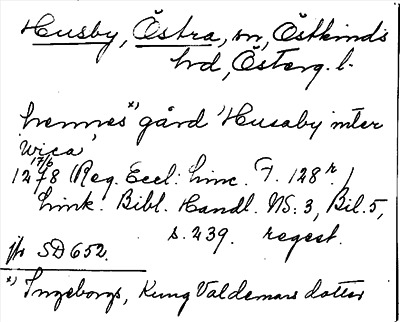 Husby, Östra, sn, Östkinds
hd, Österg. l.
hennes*) gård 'Husaby inter
Wica'
17/6
1278 Reg. Eccl. Linc. F. 128 r. /
Link. Bibl. Handl. NS: 3, Bil. 5,
s. 239. regest.
jfr SD 652.
*) Ingeborgs, Kung Valdemars dotter